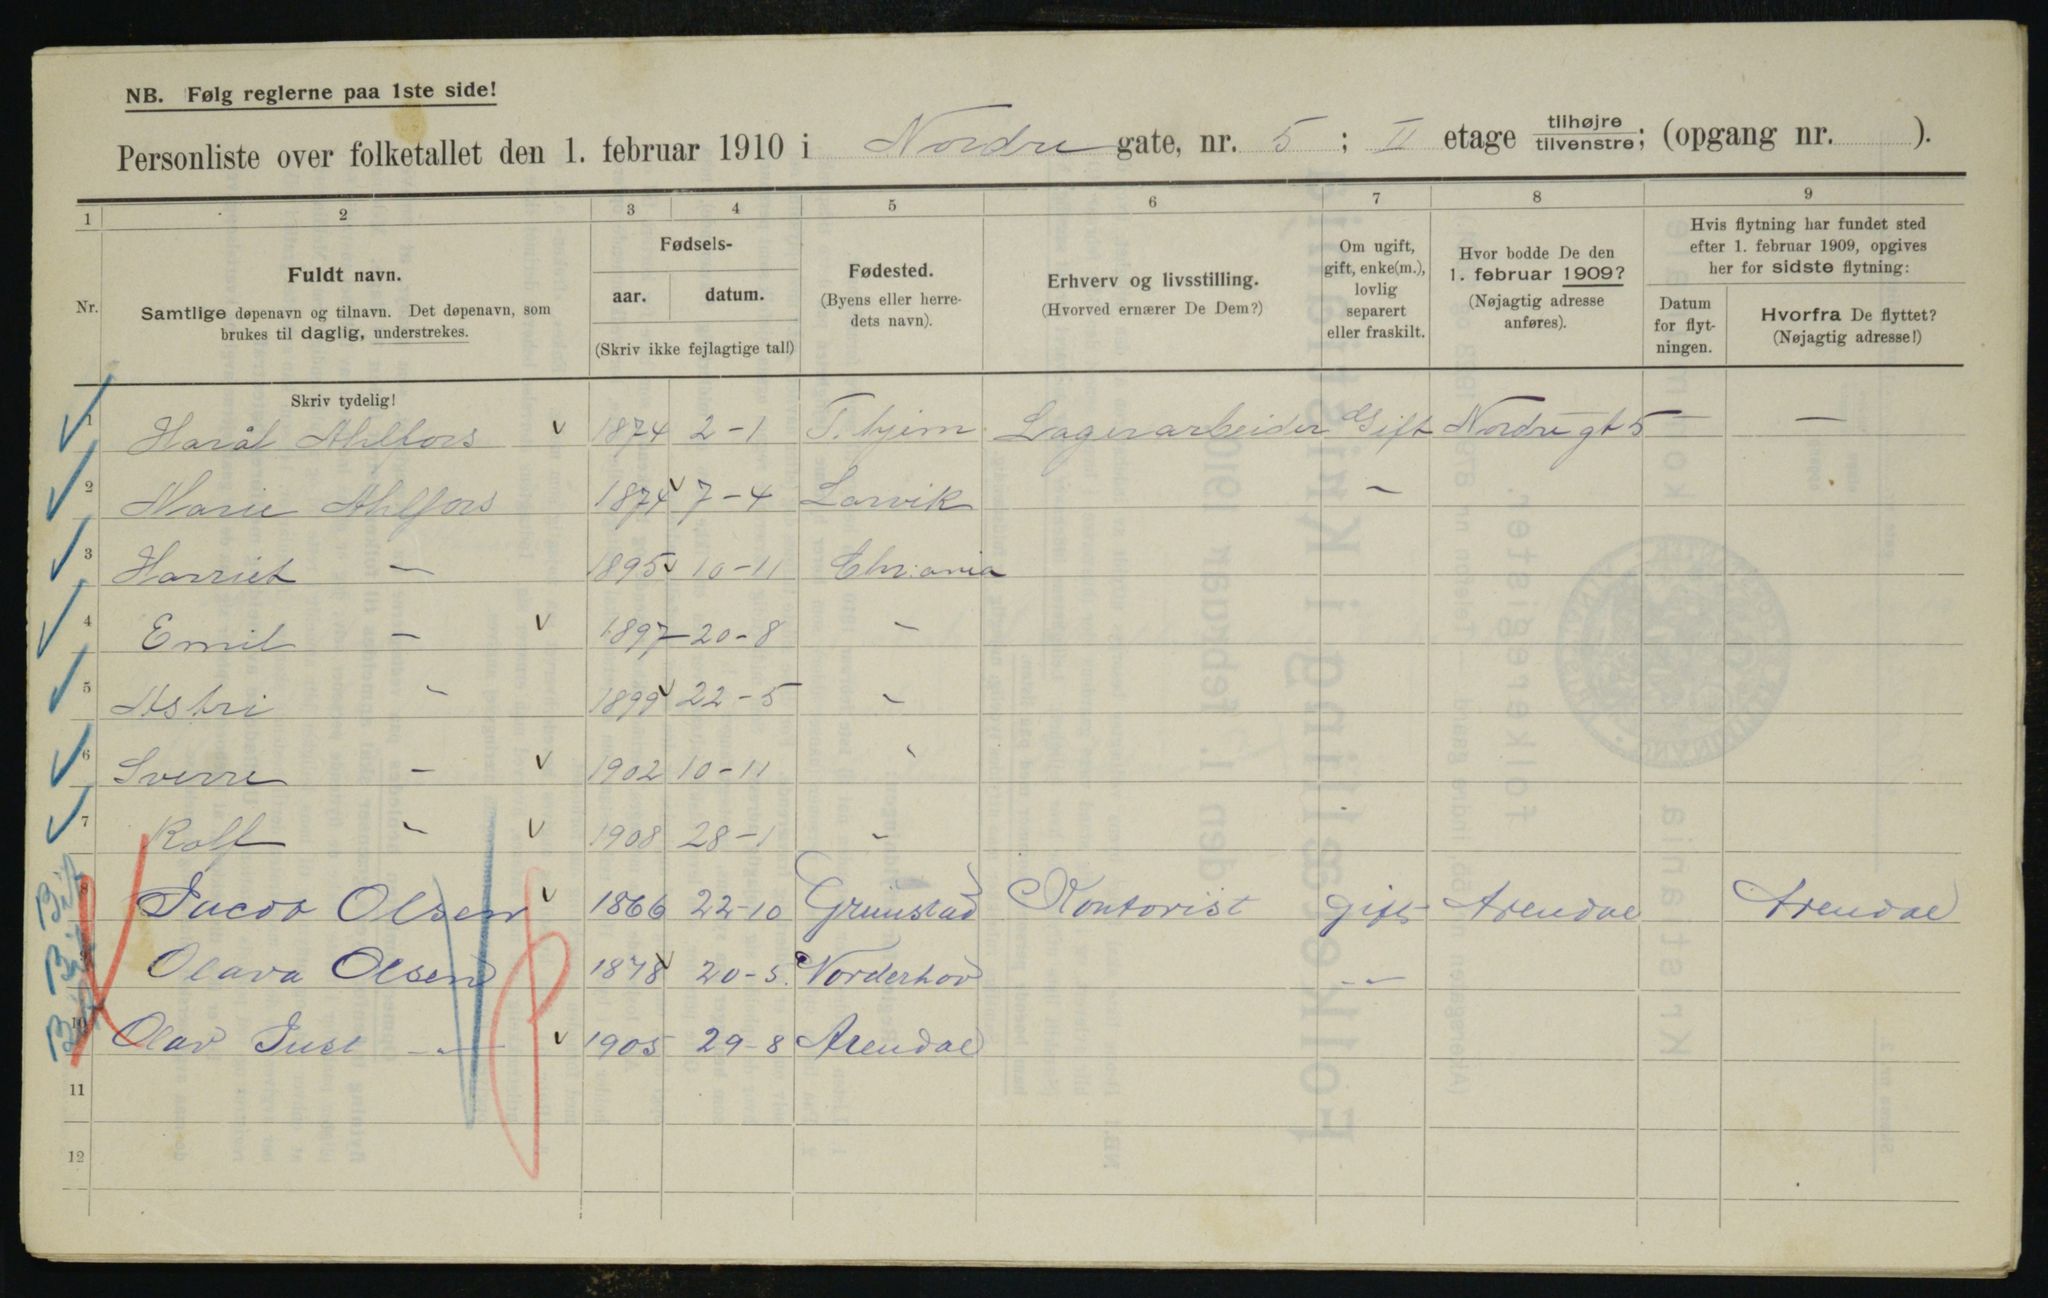 NB. Følg reglerne paa 1ste side!
Personliste over folketallet den 1. februar 1910 i Nordre gate, nr. 5 ; II etage tilhøjre/tilvenstre; (opgang nr. ).
1 2 3 4 5 6 7 8 9
Nr.
Fuldt navn.
Samtlige døpenavn og tilnavn. Det døpenavn, som
brukes til daglig, understrekes.
Fødsels-
aar. datum.
(Skriv ikke fejlagtige tal!)
Fødested.
(Byens eller herre-
dets navn).
Erhverv og livsstilling.
(Hvorved ernærer De Dem?)
Om ugift,
gift, enke(m.),
lovlig
separert
eller fraskilt.
Hvor bodde De den
1. februar 1909?
(Nøjagtig adresse
anføres).
Hvis flytning har fundet sted
efter 1. februar 1909, opgives
her for sidste flytning:
Datum
for flyt-
ningen.
Hvorfra De flyttet?
(Nøjagtig adresse!)
Skriv tydelig!
1 Harål Ahlfors 1874 2-1 T.hjem Lagerarbeider Gift Nordregt 5 — —
2 Marie Ahlfors 1874 7-4 Larvik —
3 Harriet — 1895 10-11 Chr.ania
4 Emil — 1897 20-8 —
5 Astri — 1899 22-5 —
6 Sverre — 1902 10-11 —
7 Rolf — 1908 28-1 —
8 Jacob Olsen 1866 22-10 Grimstad Kontorist gift Arendal Arendal
9 Olava Olsen 1878 20-5 Norderhov —
10 Olav Juel — 1905 29-8 Arendal
11
12